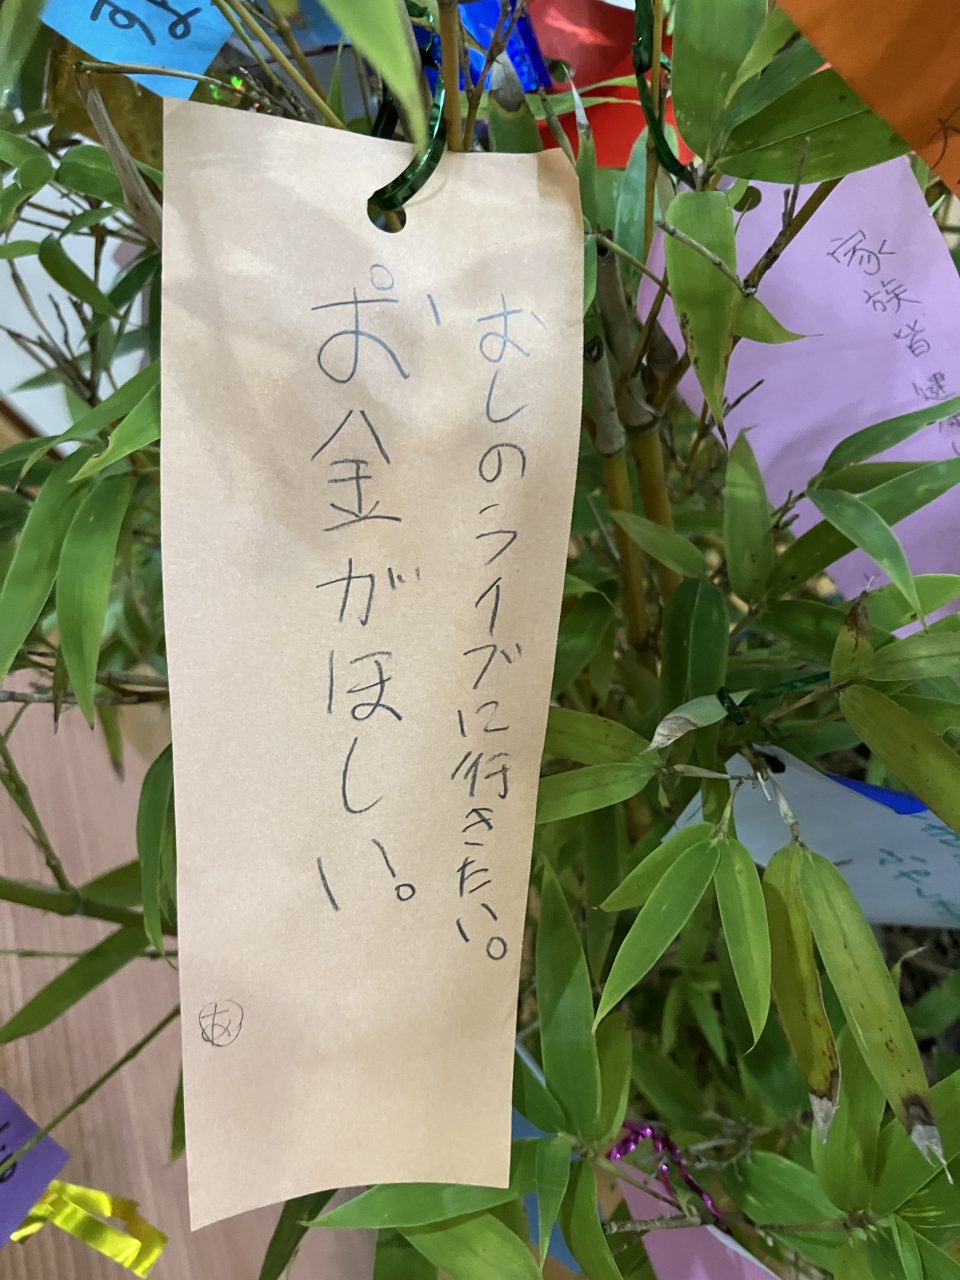 おしのライブに行きたい。
お金がほしい。
あ
家族皆健康